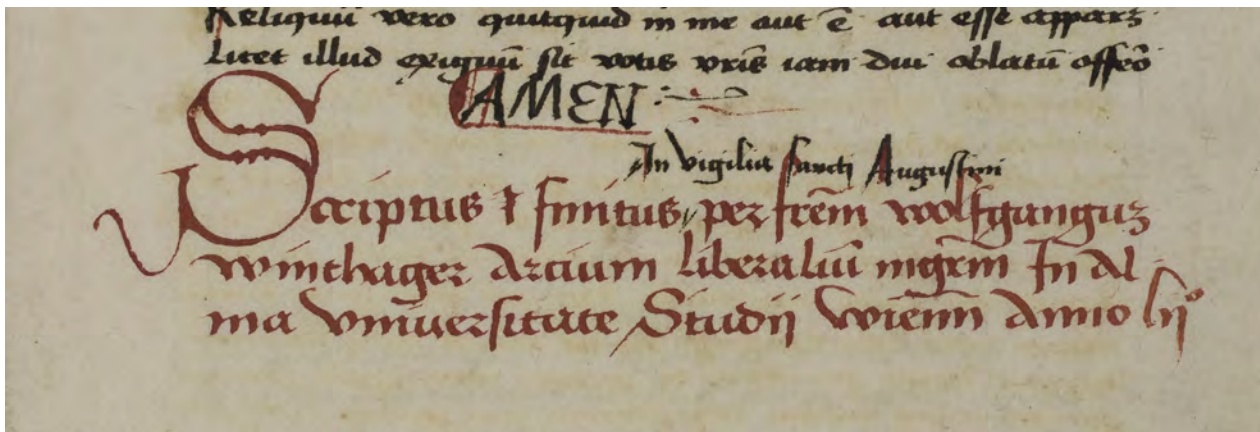 Reliquū vero quitquid in me aut ē aut esse apparꝫ
Licet illud exiguū sit votis vr̄is iam dui oblatū offeō
AMEN
In vigilia sancti Augustini
Scriptus ⁊ finitus per frēm wolfgangū
winthager Arcium liberaliū mgr̄m In Al
ma vniuersitate Studii wienn̄ Anno lii°